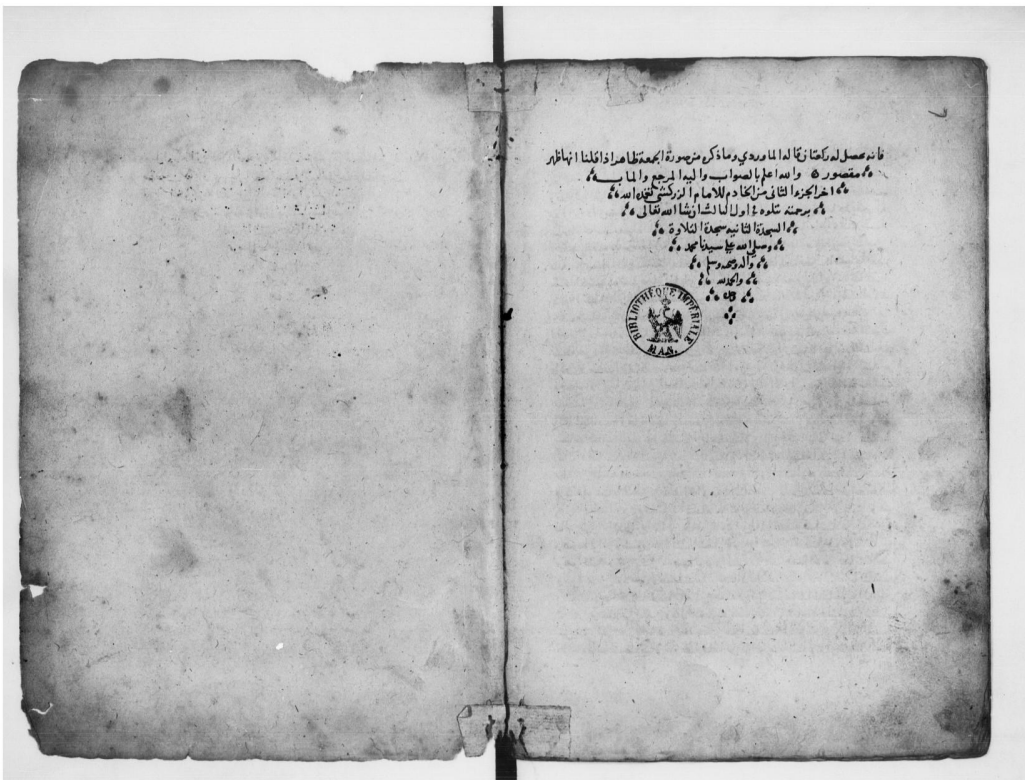 فانه يحصل له ركعتان قاله الماوردي وما ذكره من صورة الجمعة ظاهر اذا قلنا انها ظهر
مقصورة والله اعلم بالصواب واليه المرجع والماب
اخر الجزء الثانى من الخادم للامام الزركشى تغمده الله
برحمته يتلوه في اول الثالث ان شا الله تعالى
السجدة الثانيه سجدة التلاوة
وصلى الله على سيدنا محمد
واله وصحبه وسلم
والحمد لله
BIBLIOTHÈQUE IMPÉRIALE
MAN.